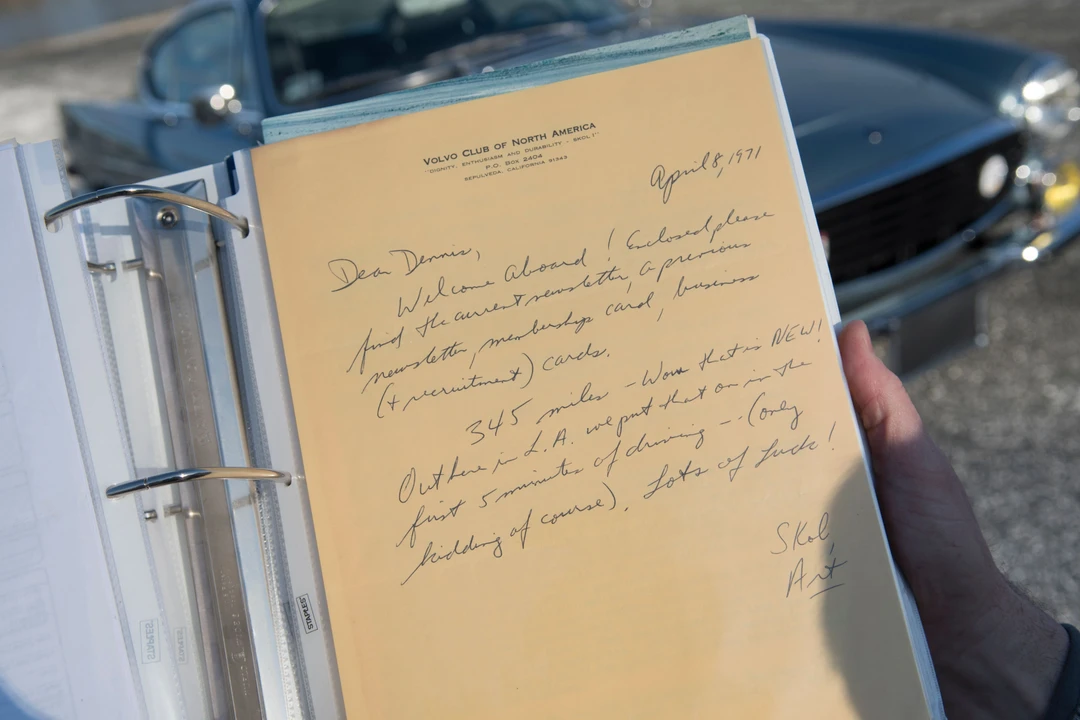 VOLVO CLUB OF NORTH AMERICA
"DIGNITY, ENTHUSIASM AND DURABILITY - SKOL!"
P.O. BOX 2404
SEPULVEDA, CALIFORNIA 91343
April 8, 1971
Dear Dennis,
Welcome aboard! Enclosed please
find the current newsletter, a previous
newsletter, membership card, business
(+ recruitment) cards.
345 miles - Wow that is NEW!
Out here in L.A. we put that on in the
first 5 minutes of driving -- (only
kidding of course). Lots of Luck!
Skol,
Art
STAPLES
STAPLES